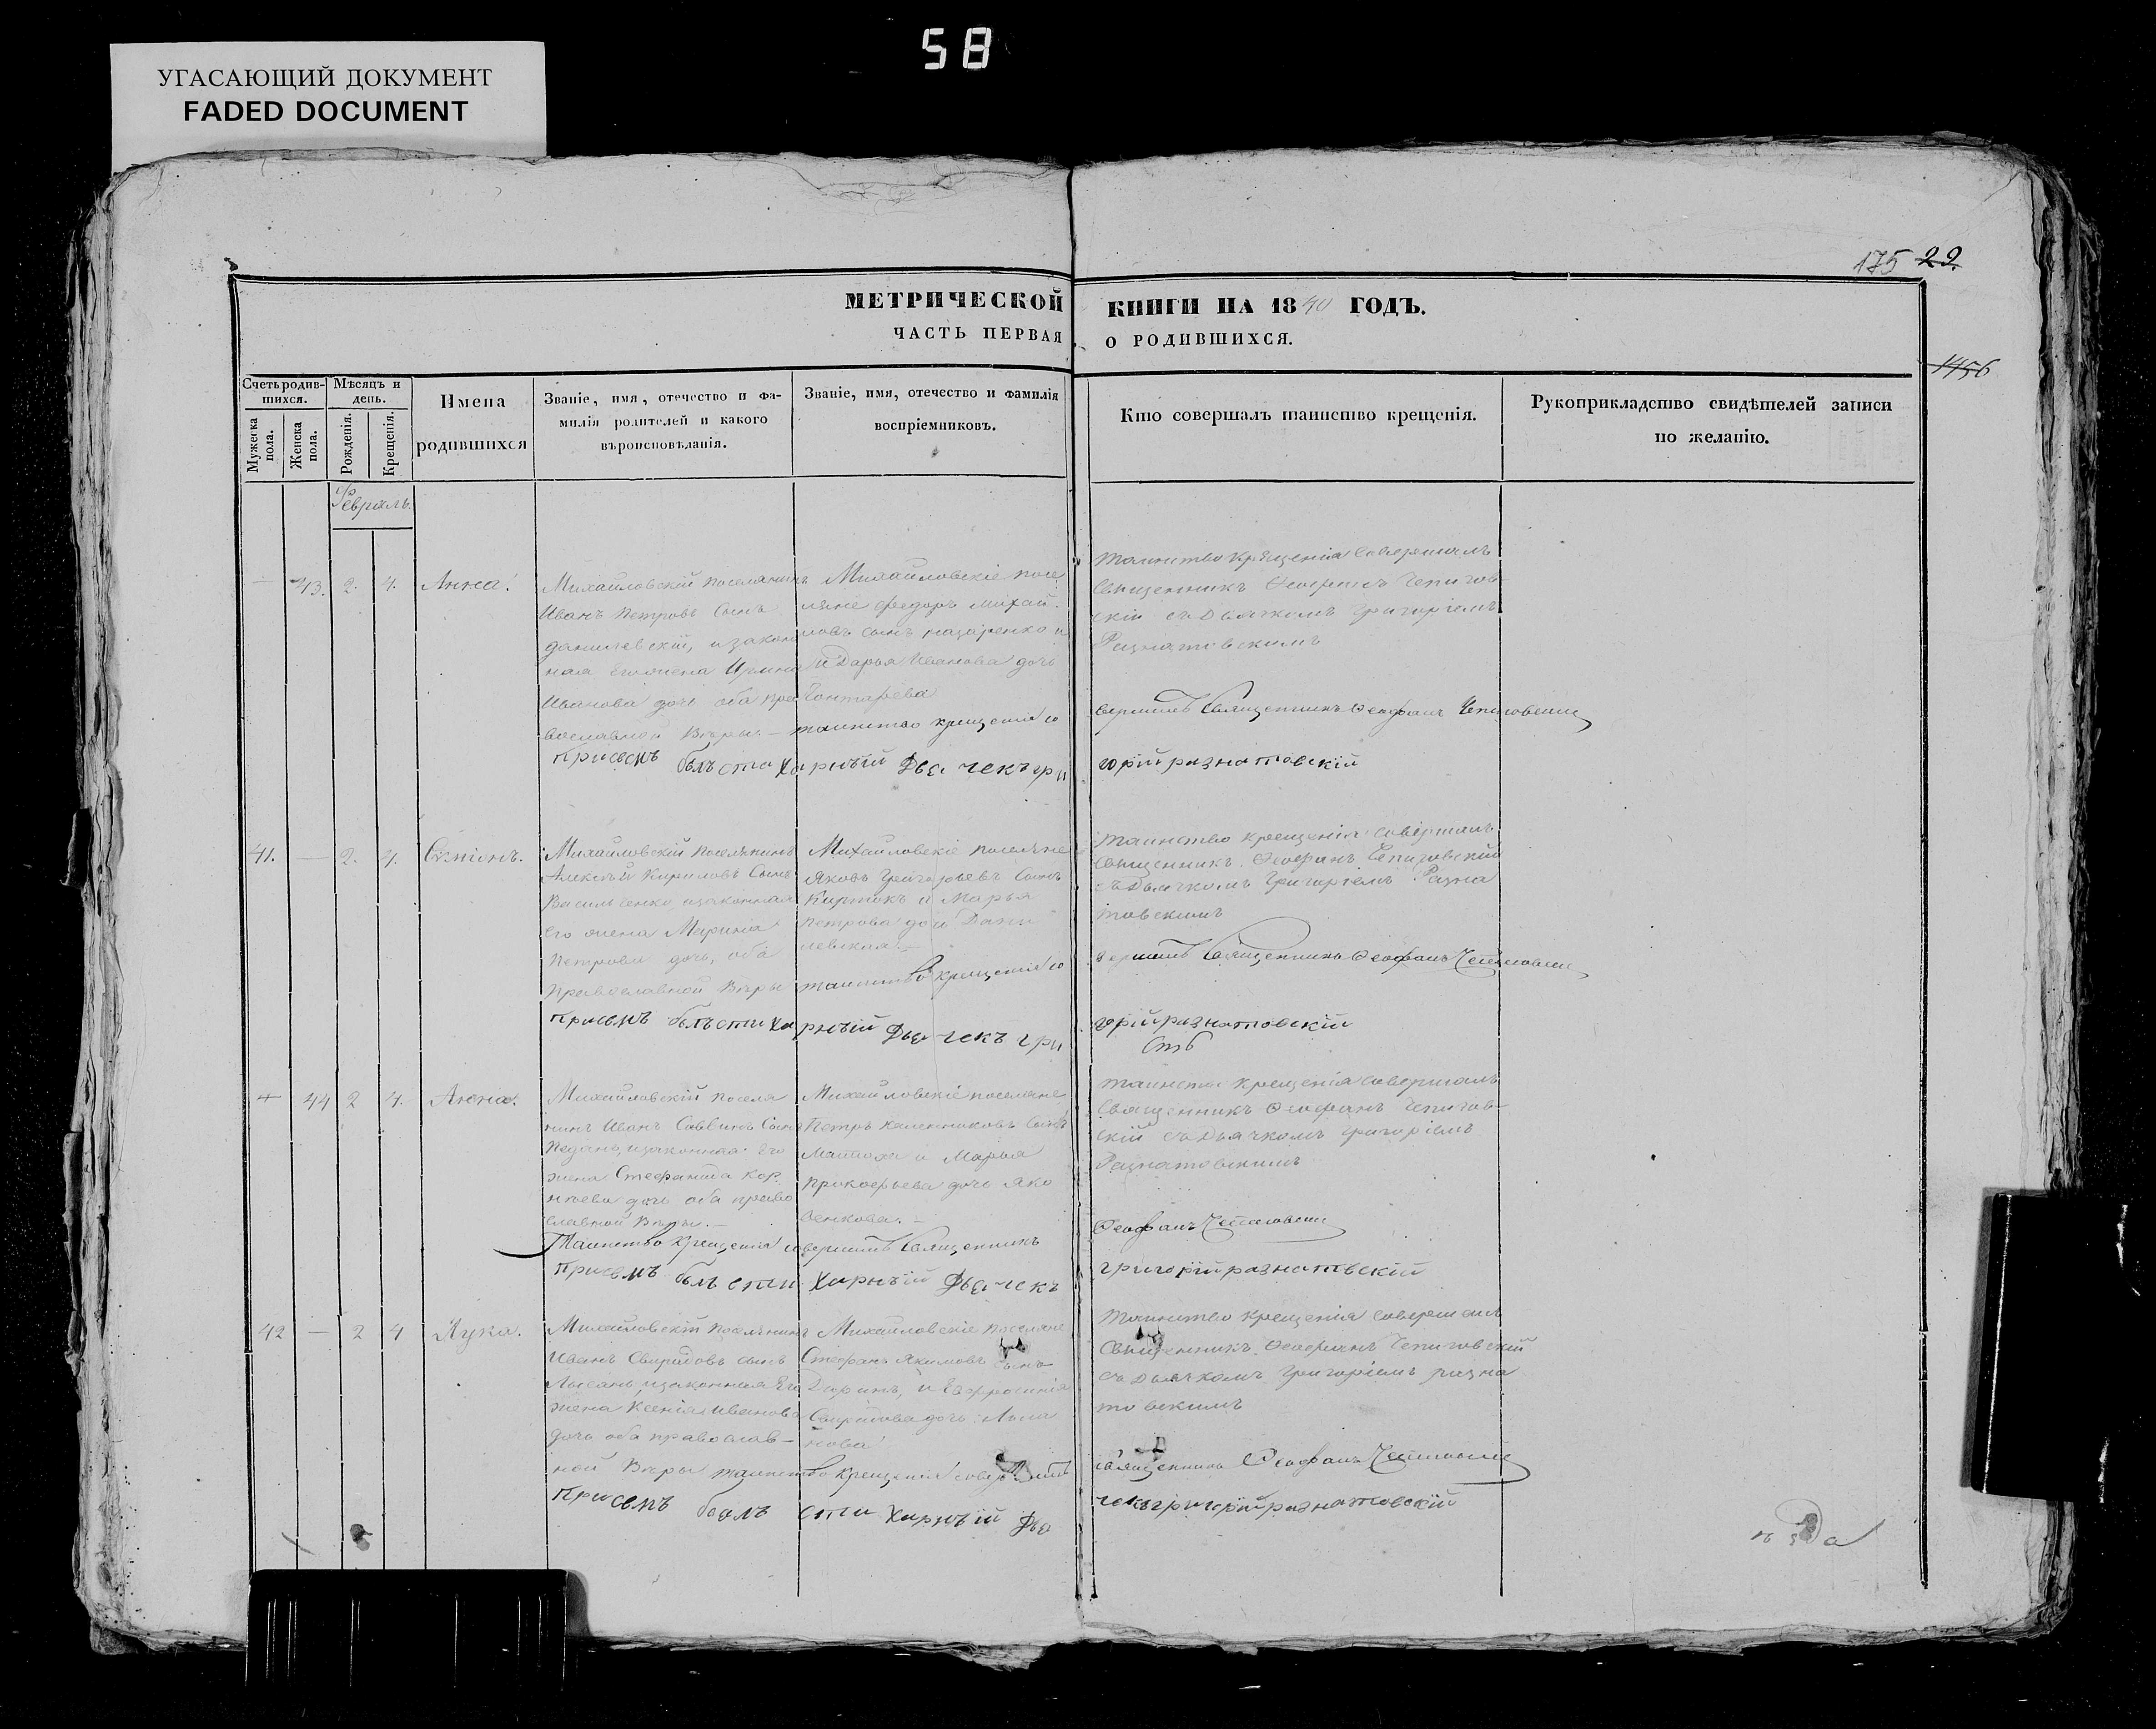 58
УГАСАЮЩИЙ ДОКУМЕНТ
FADED DOCUMENT
175 22.
1456
МЕТРИЧЕСКОЙ КНИГИ НА 1840 ГОДЪ.
ЧАСТЬ ПЕРВАЯ О РОДИВШИХСЯ.
Счетъ родившихся.
Мужеска пола.
Женска пола.
Мѣсяцъ и день.
Рожденія.
Крещенія.
Имена родившихся
Званіе, имя, отечество и фамилія родителей и какого вѣроисповѣданія.
Званіе, имя, отечество и фамилія воспріемниковъ.
Кто совершалъ таинство крещенія.
Рукоприкладство свидѣтелей записи по желанію.
Февраль.
— 43. 2. 4. Анна.
Михайловскій поселянинъ
Иванъ Петровъ сынъ
данилевскій, и закон
ная его жена Ирина
Иванова дочь оба пра
вославной Вѣры. —
Михайловскіе посе
ляне Федоръ Михай
ловъ сынъ назаренко и
и Дарья Иванова дочь
Гонтарева
Таинство крещенія совершалъ
Священникъ Феофанъ Чепигов
скій съ Дьячкомъ Григоріемъ
Разнатовскимъ
таинство крещенія со вершилъ Священникъ Феофанъ Чепиговскій
Присемъ былъ стихарный Дьячекъ григорій разнатовскій
41. — 2. 4.
Михайловскій поселянинъ
Алексѣй Кириловъ Сынъ
Васильченко, и законная
его жена Марина
Петрова дочь, оба
Православной Вѣры
Михайловскіе поселяне
Яковъ Григорьевъ Сынъ
и Марья
Петрова дочь Дани
левская. —
Таинство крещенія совершалъ
Священникъ Феофанъ Чепиговскій
съ Дьячкомъ Григоріемъ Разна
товскимъ
таинство крещенія со вершилъ Священникъ Феофанъ Чепиговскій
Присемъ былъ стихарный Дьячекъ григорій разнатовскій
— 44 2 4. Анна.
Михайловскій поселя
нинъ Иванъ Саввинъ Сынъ
и законная его
жена Стефанида Кор
нѣева дочь оба право
славной Вѣры. —
Михайловскіе поселяне
Петръ Сынъ
и Марья
Прокофьева дочь Яко
венкова. —
Таинство Крещенія совершалъ
Священникъ Феофанъ Чепигов-
скій съ Дьячкомъ григоріемъ
Разнатовскимъ
Таинство Крещенія совершилъ Священникъ Феофанъ Чепиговскій
Присемъ былъ стихарный Дьячекъ григорій разнатовскій
42 — 2 4 Лука.
Михайловскій поселянинъ
Иванъ Свиридовъ сынъ
и законная его
жена Ксенія Иванова
дочь оба православ-
ной Вѣры
Михайловскіе поселяне
Стефанъ Якимовъ сынъ
и Евфросинія
Свиридова дочь
Таинство крещенія совершалъ
Священникъ Феофанъ Чепиговскій
съ Дьячкомъ Григоріемъ разна
товскимъ
таинство Крещенія совершилъ священникъ Феофанъ Чепиговскій
Присемъ былъ стихарный Дьячекъ григорій разнатовскій